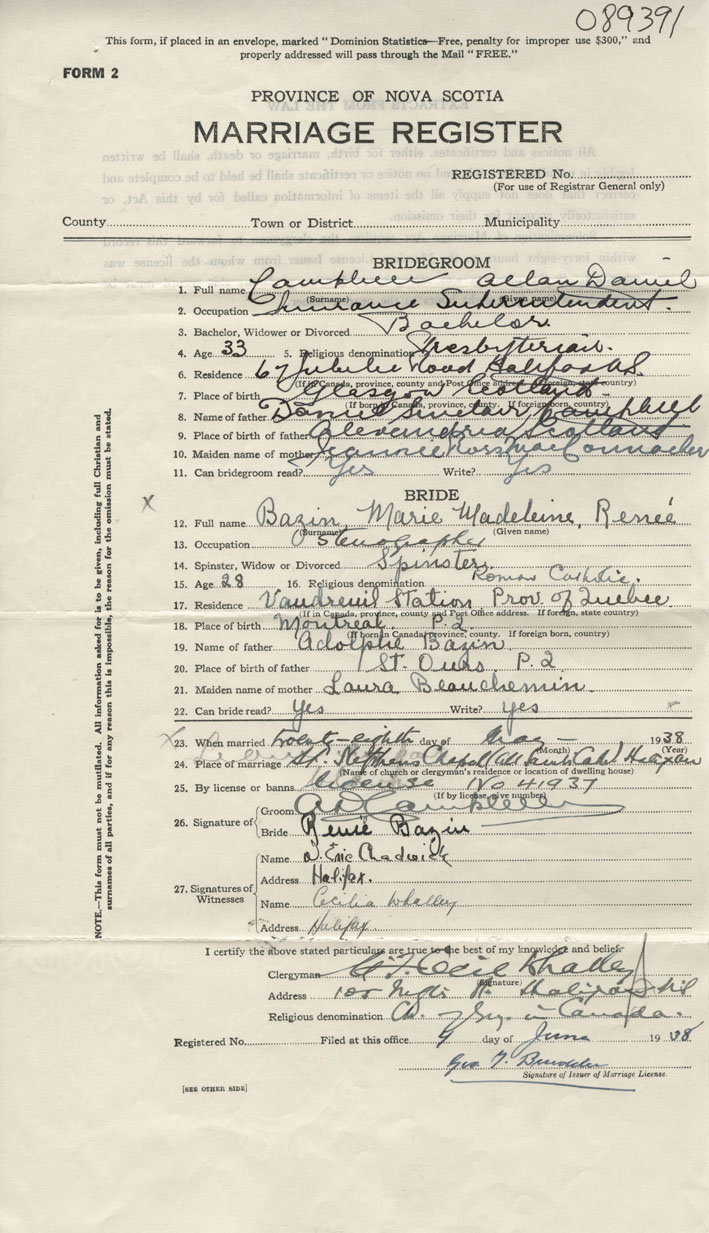 089391
This form, if placed in an envelope, marked "Dominion Statistics—Free, penalty for improper use $300," and
properly addressed will pass through the Mail "FREE."
FORM 2
PROVINCE OF NOVA SCOTIA
MARRIAGE REGISTER
REGISTERED No.
(For use of Registrar General only)
County Town or District Municipality
BRIDEGROOM
1. Full name Campbell Allan Daniel
(Surname) (Given name)
2. Occupation Insurance Superintendent.
3. Bachelor, Widower or Divorced Bachelor.
4. Age 33 5. Religious denomination Presbyterian.
6. Residence 67 Jubilee Road Halifax N.S.
(If in Canada, province, county and Post Office address. If foreign, state country)
7. Place of birth Glasgow Scotland
(If born in Canada, province, county. If foreign born, country)
8. Name of father Daniel Sinclair Campbell
9. Place of birth of father Alexandria Scotland
10. Maiden name of mother Jeannie Ross MacConnacher
11. Can bridegroom read? Yes Write? Yes
X
BRIDE
12. Full name Bazin, Marie Madeleine, Renée
(Surname) (Given name)
13. Occupation Stenographer
14. Spinster, Widow or Divorced Spinster.
15. Age 28 16. Religious denomination Roman Catholic.
17. Residence Vaudreuil Station, Prov. of Quebec
(If in Canada, province, county and Post Office address. If foreign, state country)
18. Place of birth Montreal P.Q.
(If born in Canada, province, county. If foreign born, country)
19. Name of father Adolphe Bazin
20. Place of birth of father St. Ours P.Q.
21. Maiden name of mother Laura Beauchemin
22. Can bride read? Yes Write? Yes
X
23. When married twenty-eighth day of May 1938
(Month) (Year)
24. Place of marriage St. Stephens Chapel (All Saints Cath.) Halifax
(Name of church or clergyman's residence or location of dwelling house)
25. By license or banns License No 41937
(If by license, give number)
26. Signature of Groom A D Campbell
Bride Renée Bazin
27. Signatures of Witnesses
Name Eric Chadwick
Address Halifax.
Name Cecilia Whalley
Address Halifax
NOTE.—This form must not be mutilated. All information asked for is to be given, including full Christian and
surnames of all parties, and if for any reason this is impossible, the reason for the omission must be stated.
I certify the above stated particulars are true to the best of my knowledge and belief.
Clergyman Cecil Whalley
(Signature)
Address Halifax
Religious denomination Ch. of Eng. in Canada.
Registered No. Filed at this office 9 day of June 1938
Geo T.
Signature of Issuer of Marriage License.
[SEE OTHER SIDE]